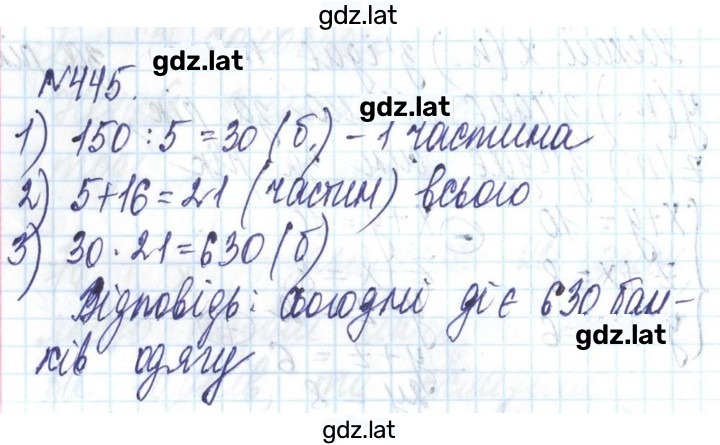 gdz.lat
№445.
gdz.lat
gdz.lat
1) 150 : 5 = 30 (б.) - 1 частина
2) 5+16 = 21 (частин) всього
3) 30 · 21 = 630 (б)
Відповідь: сьогодні діє 630 бан-
gdz.lat
ків одягу
gdz.lat